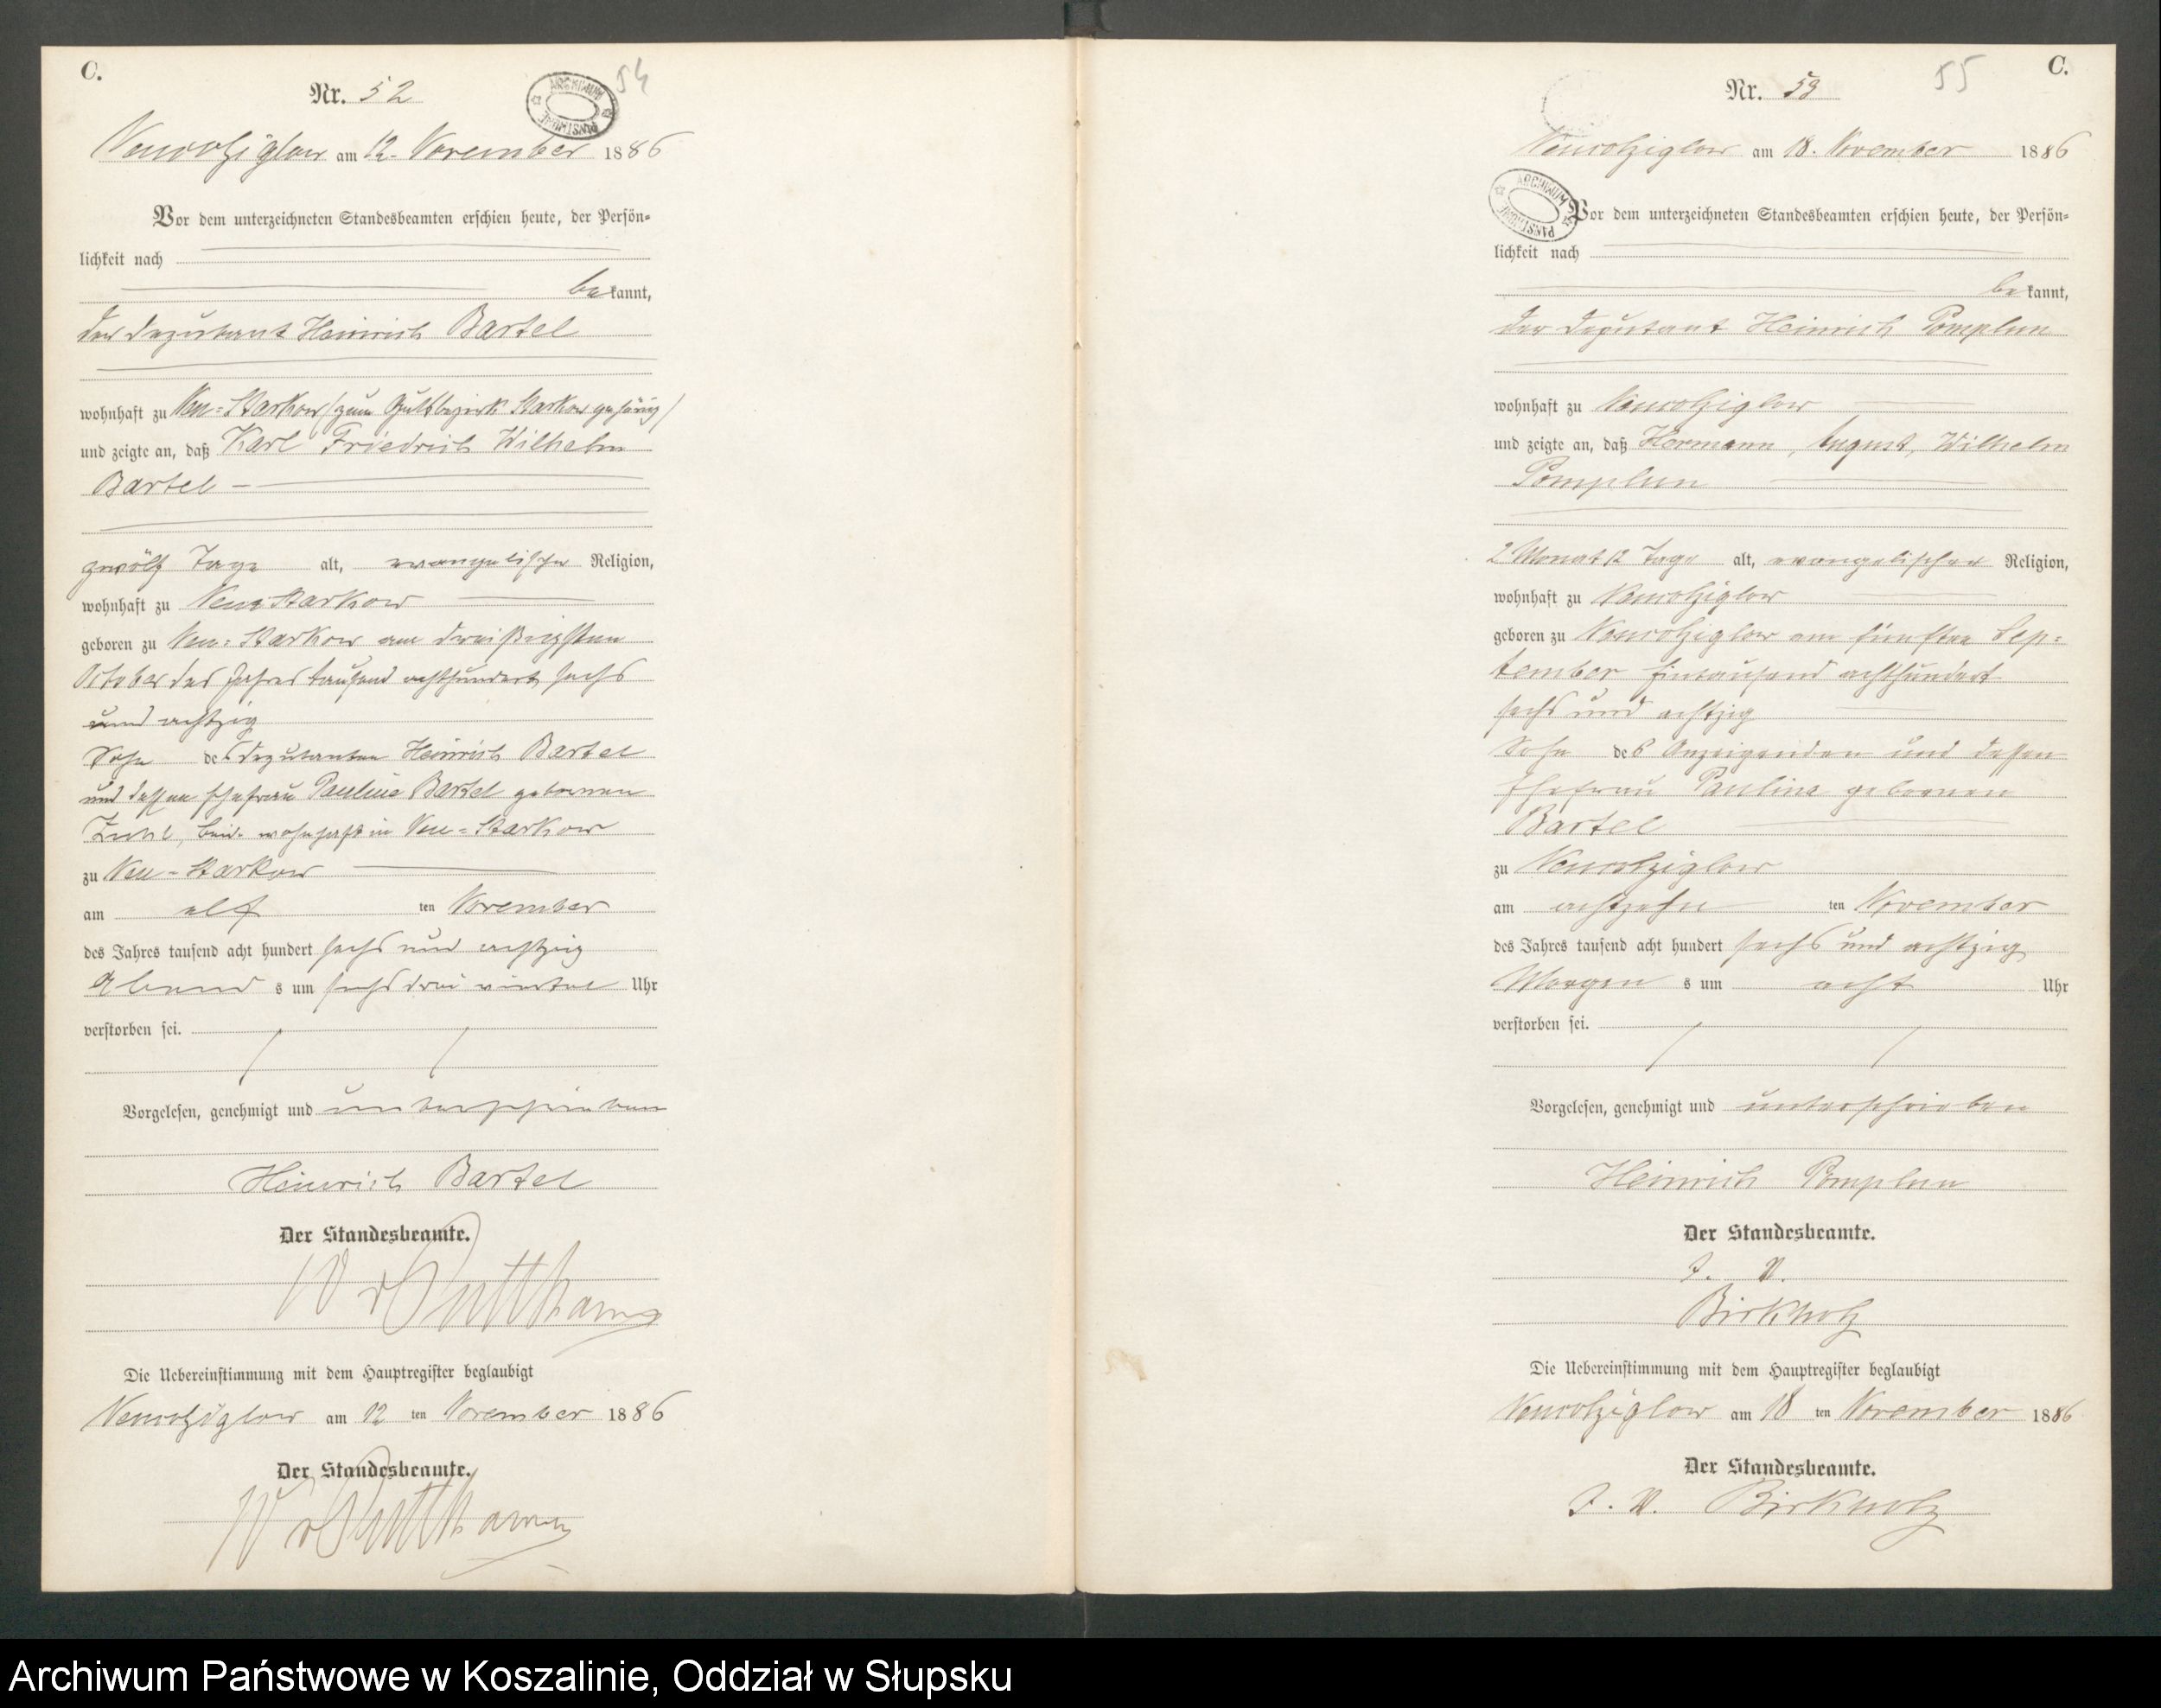 C.
Nr. 52
54
ARCHIWUM PAŃSTWOWE
am 12. November 1886
Vor dem unterzeichneten Standesbeamten erschien heute, der Persön-
lichkeit nach
bekannt,
der Deputant Heinrich Bartel
wohnhaft zu Neu-Starkow /zum Gutsbezirk Starkow gehörig/
und zeigte an, daß Karl Friedrich Wilhelm
Bartel
zwölf Tage alt, evangelischer Religion,
wohnhaft zu Neu Starkow
geboren zu Neu-Starkow am dreißigsten
October des Jahres tausend achthundert sechs
und achtzig
Sohn des Deputanten Heinrich Bartel
und dessen Ehefrau Pauline Bartel geborenen
wohnhaft in Neu-Starkow
zu Neu-Starkow
am elf ten November
des Jahres tausend acht hundert sechs und achtzig
Abends um sechs drei viertel Uhr
verstorben sei.
Vorgelesen, genehmigt und unterschrieben
Heinrich Bartel
Der Standesbeamte.
W v Puttkamer
Die Uebereinstimmung mit dem Hauptregister beglaubigt
am 12 ten November 1886
Der Standesbeamte.
W v Puttkamer
C.
Nr. 53
55
am 18. November 1886
ARCHIWUM PAŃSTWOWE
Vor dem unterzeichneten Standesbeamten erschien heute, der Persön-
lichkeit nach
bekannt,
der Deputant Heinrich Pomplun
wohnhaft zu
und zeigte an, daß Hermann, August, Wilhelm
Pomplun
2 Monat 12 Tage alt, evangelischer Religion,
wohnhaft zu
geboren zu am fünften Sep-
tember Eintausend achthundert
sechs und achtzig
Sohn des Anzeigenden und dessen
Ehefrau Pauline geborenen
Bartel
zu
am achtzehn ten November
des Jahres tausend acht hundert sechs und achtzig
Morgens um acht Uhr
verstorben sei.
Vorgelesen, genehmigt und unterschrieben
Heinrich Pomplun
Der Standesbeamte.
J. V.
Birkholz
Die Uebereinstimmung mit dem Hauptregister beglaubigt
am 18 ten November 1886
Der Standesbeamte.
J. V. Birkholz
Archiwum Państwowe w Koszalinie, Oddział w Słupsku